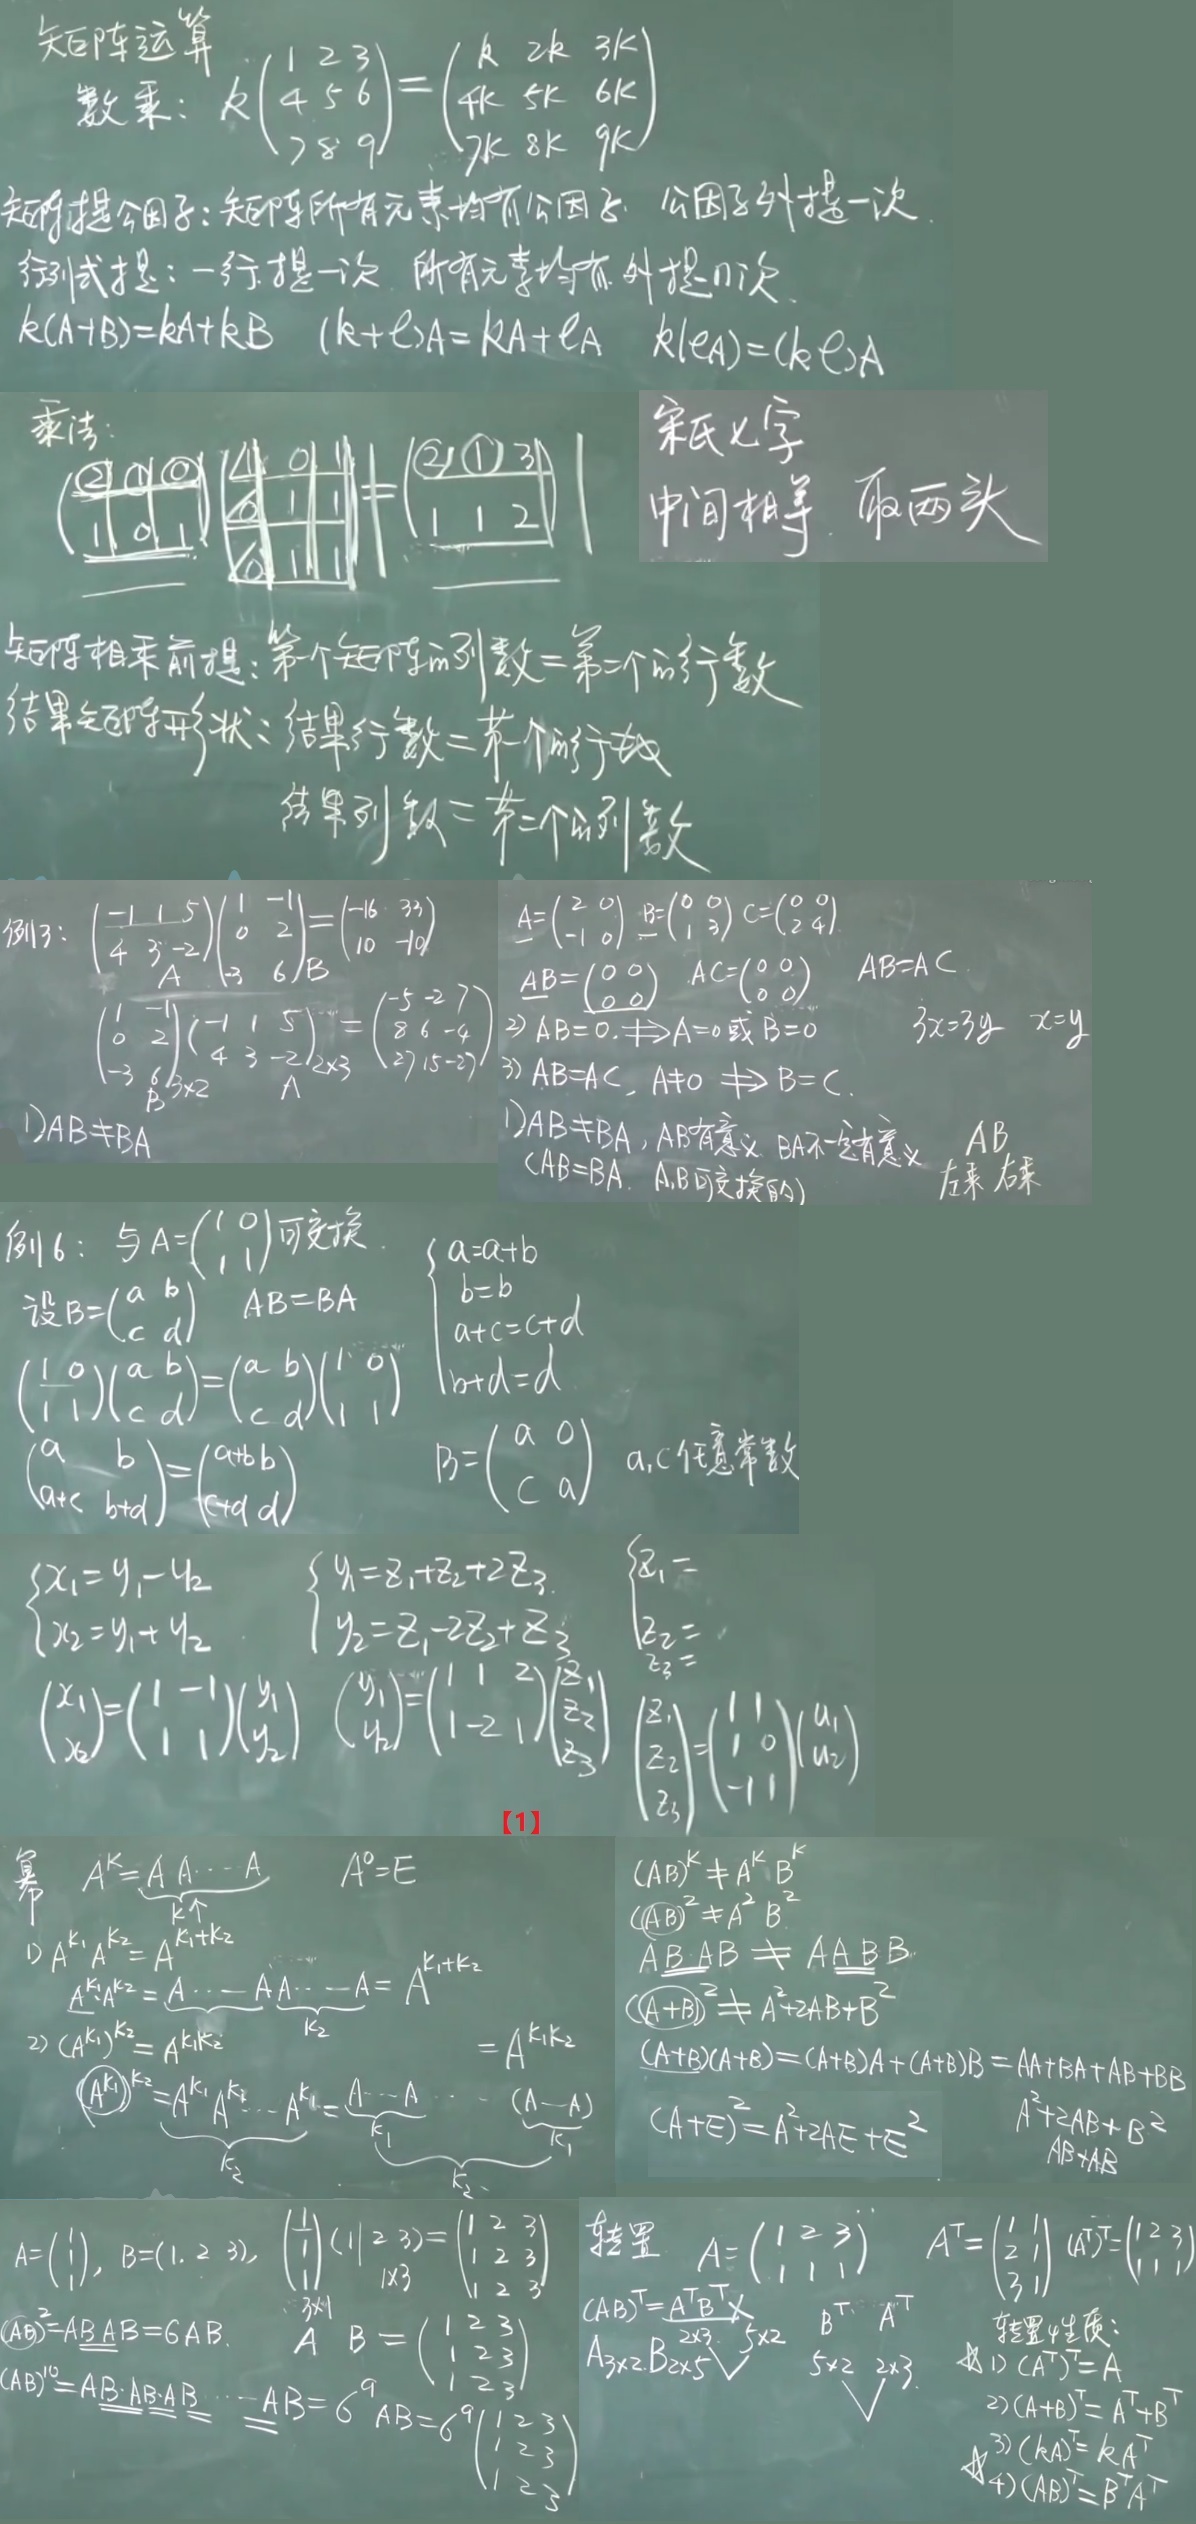 矩阵运算
数乘: k(1 2 3
4 5 6
7 8 9) = (k 2k 3k
4k 5k 6k
7k 8k 9k)
矩阵提公因子: 矩阵所有元素均有公因子. 公因子外提一次.
行列式提: 一行提一次. 所有元素均有 外提n次.
k(A+B)=kA+kB (k+ℓ)A=kA+ℓA k(ℓA)=(kℓ)A
乘法:
(2 1 0
1 0 1) (1 0 1
0 1 1
0 1 1) = (2 1 3
1 1 2)
宋氏乂字
中间相等. 取两头
矩阵相乘前提: 第一个矩阵的列数=第二个的行数
结果矩阵形状: 结果行数=第一个的行数
结果列数=第二个的列数
例3: (-1 1 5
4 3 -2)(1 -1
0 2
-3 6) = (-16 33
10 -10)
A B
(1 -1
0 2
-3 6)3×2 (-1 1 5
4 3 -2)2×3 = (-5 -2 7
8 6 -4
27 15 -27)
B A
1) AB≠BA
A=(2 0
-1 0) B=(0 0
1 3) C=(0 0
2 4).
AB=(0 0
0 0) AC=(0 0
0 0) AB=AC.
2) AB=0. ⇏ A=0 或 B=0 3x=3y x=y
3) AB=AC, A≠0 ⇏ B=C.
1) AB≠BA, AB有意义. BA不一定有意义
(AB=BA. A,B可交换的)
AB
左乘 右乘
例6: 与A=(1 0
1 1)可交换.
设B=(a b
c d) AB=BA
(1 0
1 1)(a b
c d)=(a b
c d)(1 0
1 1)
(a b
a+c b+d)=(a+b b
c+d d)
{a=a+b
b=b
a+c=c+d
b+d=d
B=(a 0
c a) a,c任意常数
{x₁=y₁-y₂
x₂=y₁+y₂
{y₁=z₁+z₂+2z₃.
y₂=z₁-2z₂+z₃
{z₁=
z₂=
z₃=
(x₁
x₂)=(1 -1
1 1)(y₁
y₂)
(y₁
y₂)=(1 1 2
1 -2 1)(z₁
z₂
z₃)
(z₁
z₂
z₃)=(1 1
1 0
-1 1)(u₁
u₂)
【1】
幂 Aᴷ=A A⋯A A⁰=E
K个
1) A^{K₁}A^{K₂}=A^{K₁+K₂}
A^{K₁}·A^{K₂}=A⋯⋯A A⋯⋯A=A^{K₁+K₂}
K₂
2) (A^{K₁})^{K₂}=A^{K₁K₂} =A^{K₁K₂}
(A^{K₁})^{K₂}=A^{K₁}A^{K₁}⋯A^{K₁}=A⋯A ⋯ (A—A)
K₁ K₁
K₂ K₂
(AB)ᴷ≠AᴷBᴷ
(AB)²≠A²B²
ABAB≠AABB
(A+B)²≠A²+2AB+B²
(A+B)(A+B)=(A+B)A+(A+B)B=AA+BA+AB+BB
(A+E)²=A²+2AE+E²
A²+2AB+B²
AB+AB
A=(1
1
1), B=(1. 2 3), (1
1
1)(1 2 3)=(1 2 3
1 2 3
1 2 3)
3×1 1×3
(AB)²=ABAB=6AB. A B=(1 2 3
1 2 3
1 2 3)
(AB)¹⁰=AB·AB·AB⋯AB=6⁹AB=6⁹(1 2 3
1 2 3
1 2 3)
转置 A=(1 2 3
1 1 1) Aᵀ=(1 1
2 1
3 1) (Aᵀ)ᵀ=(1 2 3
1 1 1)
(AB)ᵀ=AᵀBᵀ× Bᵀ Aᵀ
2×3 5×2
A3×2 B2×5 ✓ 5×2 2×3
转置性质:
☆1) (Aᵀ)ᵀ=A
2) (A+B)ᵀ=Aᵀ+Bᵀ
3) (kA)ᵀ=kAᵀ
☆4) (AB)ᵀ=BᵀAᵀ